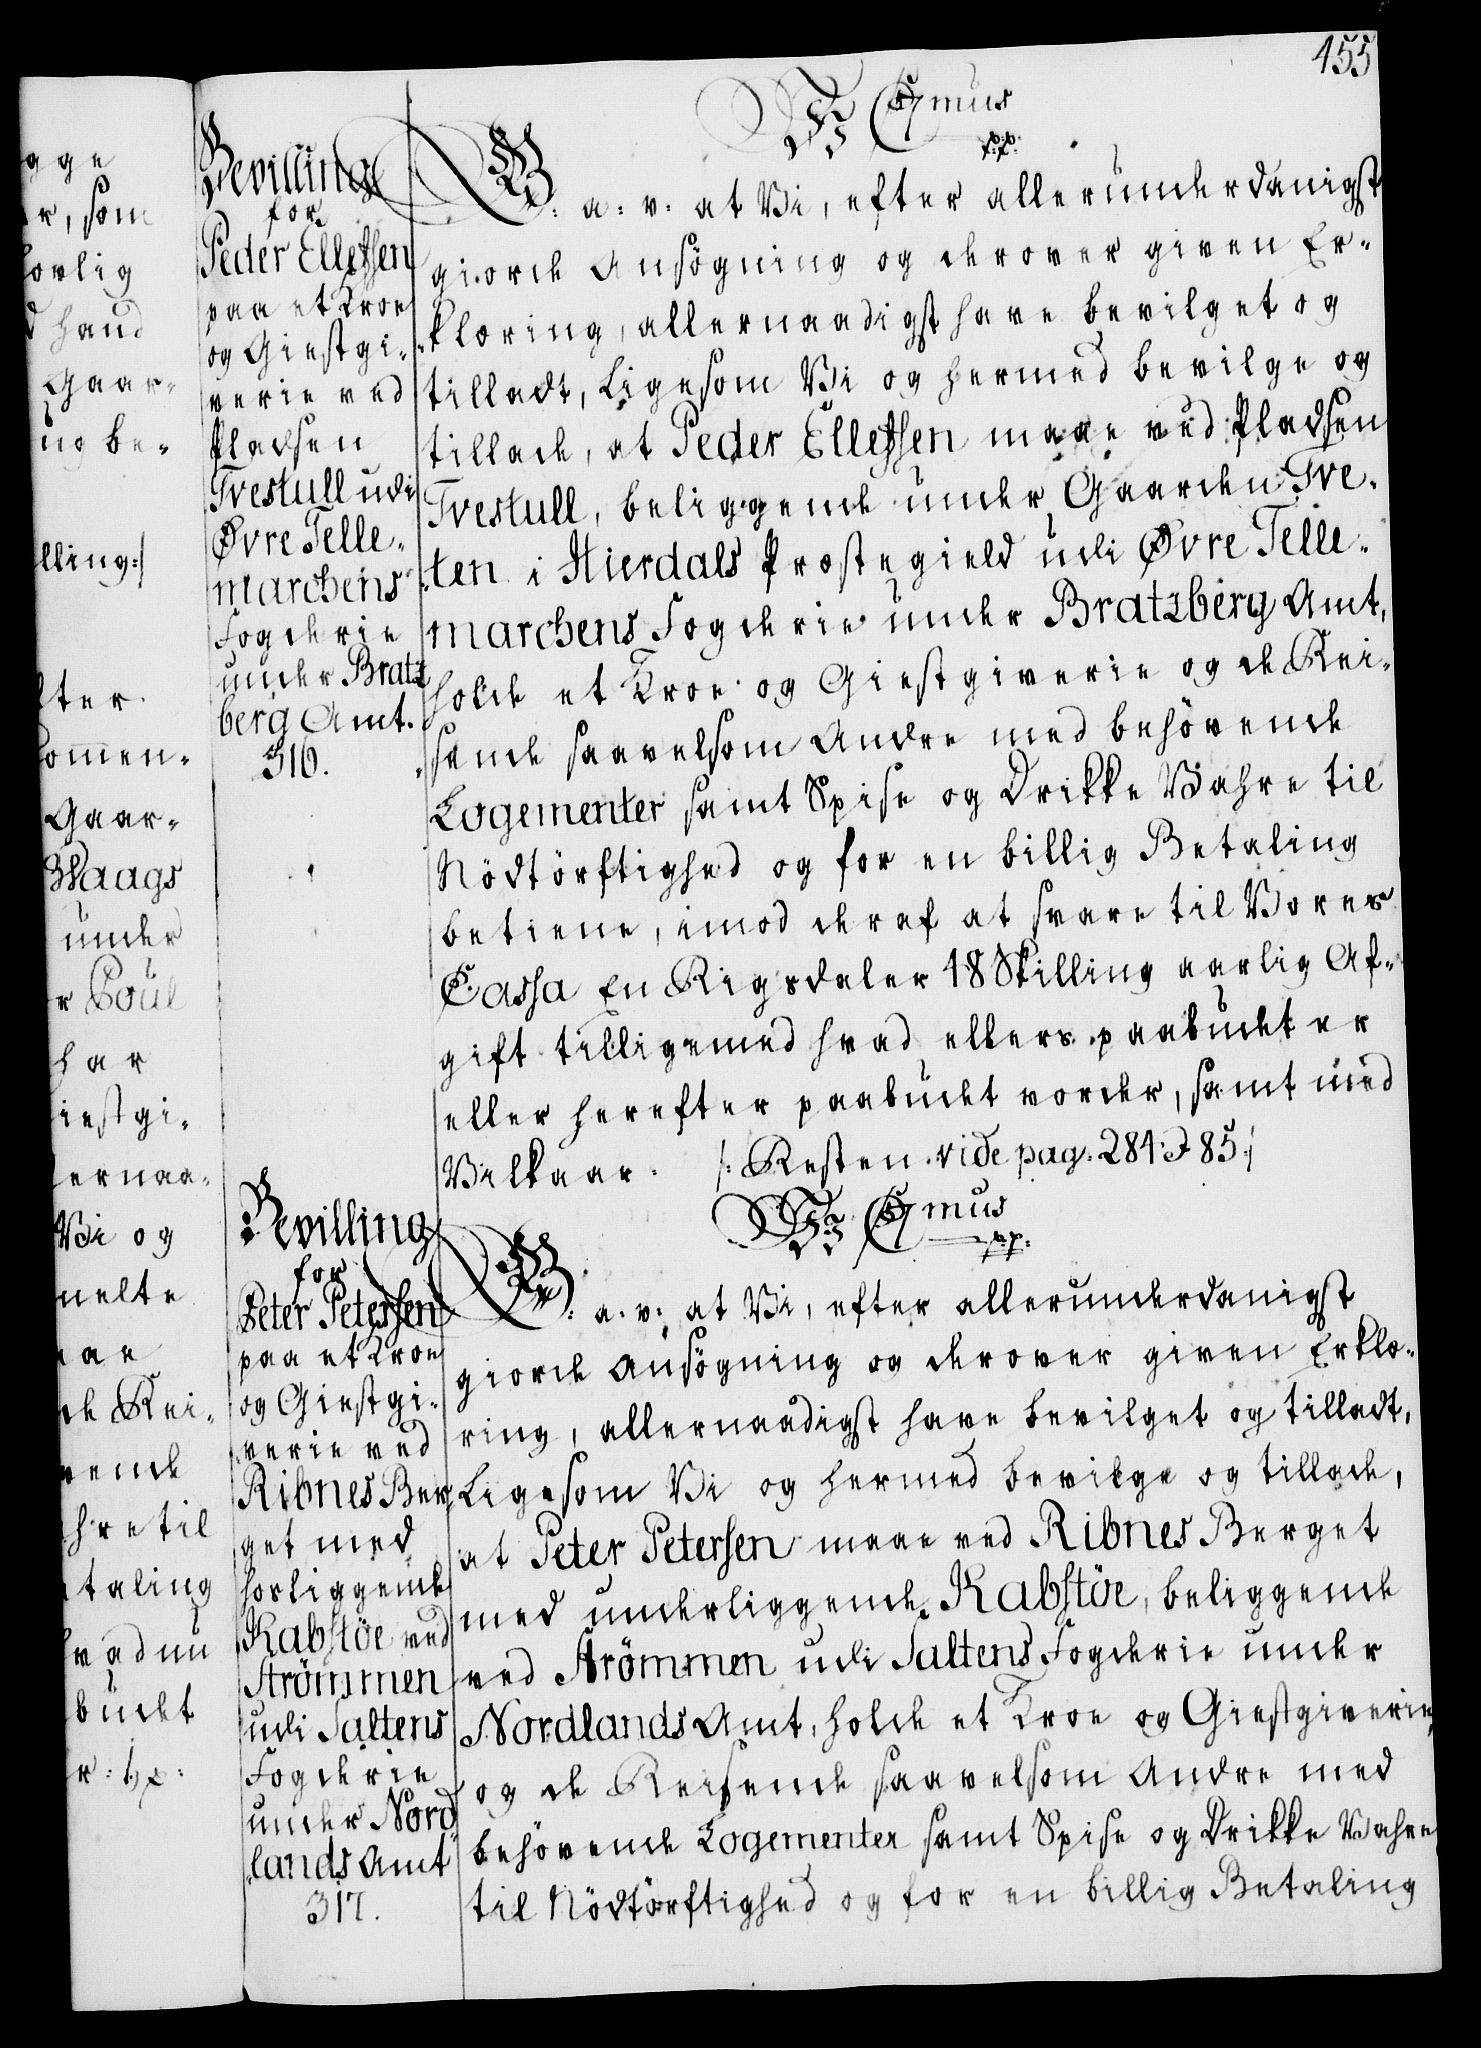 155
Wi C7mus
p.p.
Bevilling
for
Peder Ellefsen
paa et Kroe
og Giestgi-
verie ved
Pladsen
Tvestull udi
Øvre Telle-
marchens
Fogderie
under Bratz
berg Amt.
316.
G: a: v: at Vi, efter allerunderdanigst
giorde Ansögning og derover given Er-
klæring, allernaadigst have bevilget og
tilladt, Ligesom Vi og hermed bevilge og
tillade, at Peder Ellefsen maae ved Pladsen
Tvestull, beliggende under Gaarden Tve-
ten i Hierdals Præstegield udi Øvre Telle-
marchens Fogderie under Bratzberg Amt,
holde et Kroe og Giestgiverie og de Rei-
sende saavelsom Andre med behövende
Logementer samt Spise og Drikke Vahre til
Nödtörftighed og for en billig Betaling
betiene, imod deraf at svare til Vores
Cassa En Rigsdaler 48 Skilling aarlig Af-
gift tilligemed hvad ellers paabudet er
eller herefter paabudet vorder, samt med
Vilkaar. /: Resten vide pag: 284 & 85 :/
Wi C7mus
p.p.
Bevilling
for
Peter Petersen
paa et Kroe
og Giestgi-
verie ved
Ribnes Ber
get med
hosliggende
Kabstöe ved
Strömmen
udi Saltens
Fogderie
under Nord
lands Amt
317.
G: a. v: at Vi, efter allerunderdanigst
giorde Ansögning og derover given Erklæ-
ring, allernaadigst have bevilget og tilladt,
Ligesom Vi og hermed bevilge og tillade,
at Peter Petersen maae ved Ribnes Berget
med underliggende Kabstöe, beliggende
ved Strömmen udi Saltens Fogderie under
Nordlands Amt, holde et Kroe og Giestgiverie,
og de Reisende saavelsom Andre med
behövende Logementer samt Spise og Drikke Vahre
til Nödtörftighed og for en billig Betaling